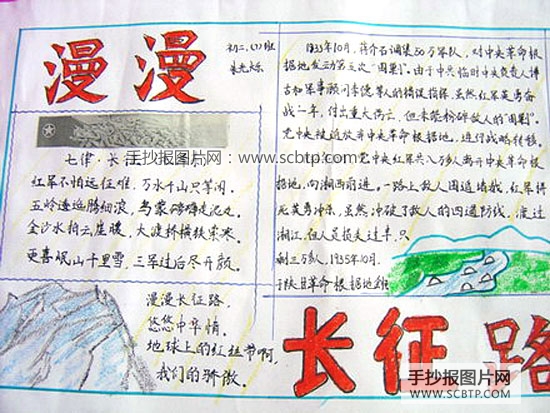 漫漫
初二.(7)班
七律·长征
手抄报图片网: www.scbtp.com
红军不怕远征难,万水千山只等闲。
五岭逶迤腾细浪,乌蒙磅礴走泥丸。
金沙水拍云崖暖,大渡桥横铁索寒。
更喜岷山千里雪,三军过后尽开颜。
漫漫长征路.
悠悠中华情.
地球上的红丝带啊,
我们的骄傲.
1933年10月,蒋介石调集50万军队,对中央革命根
据地发动第五次“围剿”.由于中共临时中央负责人博
古和军事顾问李德等人的错误指挥,虽然红军英勇奋
战一年,付出重大伤亡,但未能粉碎敌人的“围剿”.
党中央被迫放弃中央革命根据地,进行战略转移.
党中央红军共八万多人离开中央革命根
据地,向湘西前进.一路上敌人围追堵截,红军得
死英勇冲杀,虽然冲破了敌人的四道防线,渡过
湘江,但人员损失过半.只
剩三万多人,1935年10月.
于陕甘革命根据地
长征路
手抄报图片网
WWW.SCBTP.COM